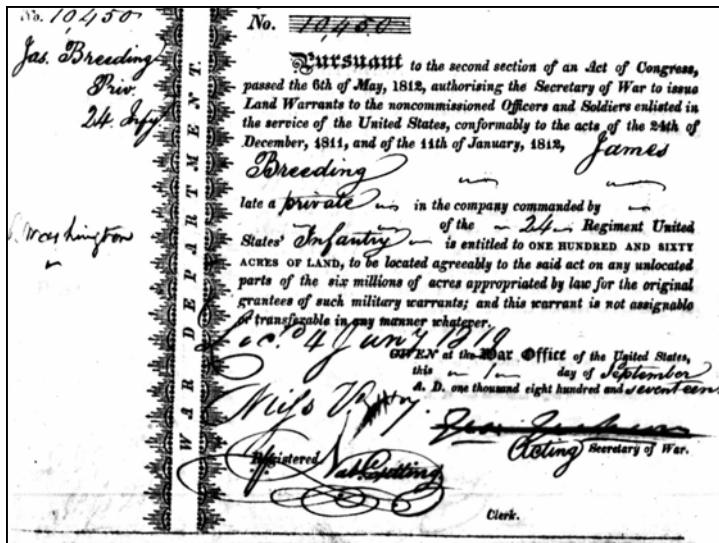 No. 10,450
Jas. Breeding
Priv.
24. Infy
Washington
WAR DEPARTMENT.
No. 10,450
Pursuant to the second section of an Act of Congress,
passed the 6th of May, 1812, authorising the Secretary of War to issue
Land Warrants to the noncommissioned Officers and Soldiers enlisted in
the service of the United States, conformably to the acts of the 24th of
December, 1811, and of the 11th of January, 1812, James
Breeding
late a private in the company commanded by
of the 24 Regiment United
States' Infantry is entitled to ONE HUNDRED AND SIXTY
ACRES OF LAND, to be located agreeably to the said act on any unlocated
parts of the six millions of acres appropriated by law for the original
grantees of such military warrants; and this warrant is not assignable
or transferable in any manner whatever.
4 Jany 1819
GIVEN at the War Office of the United States,
this 1 day of September
A. D. one thousand eight hundred and seventeen
Acting Secretary of War.
Registered
Clerk.